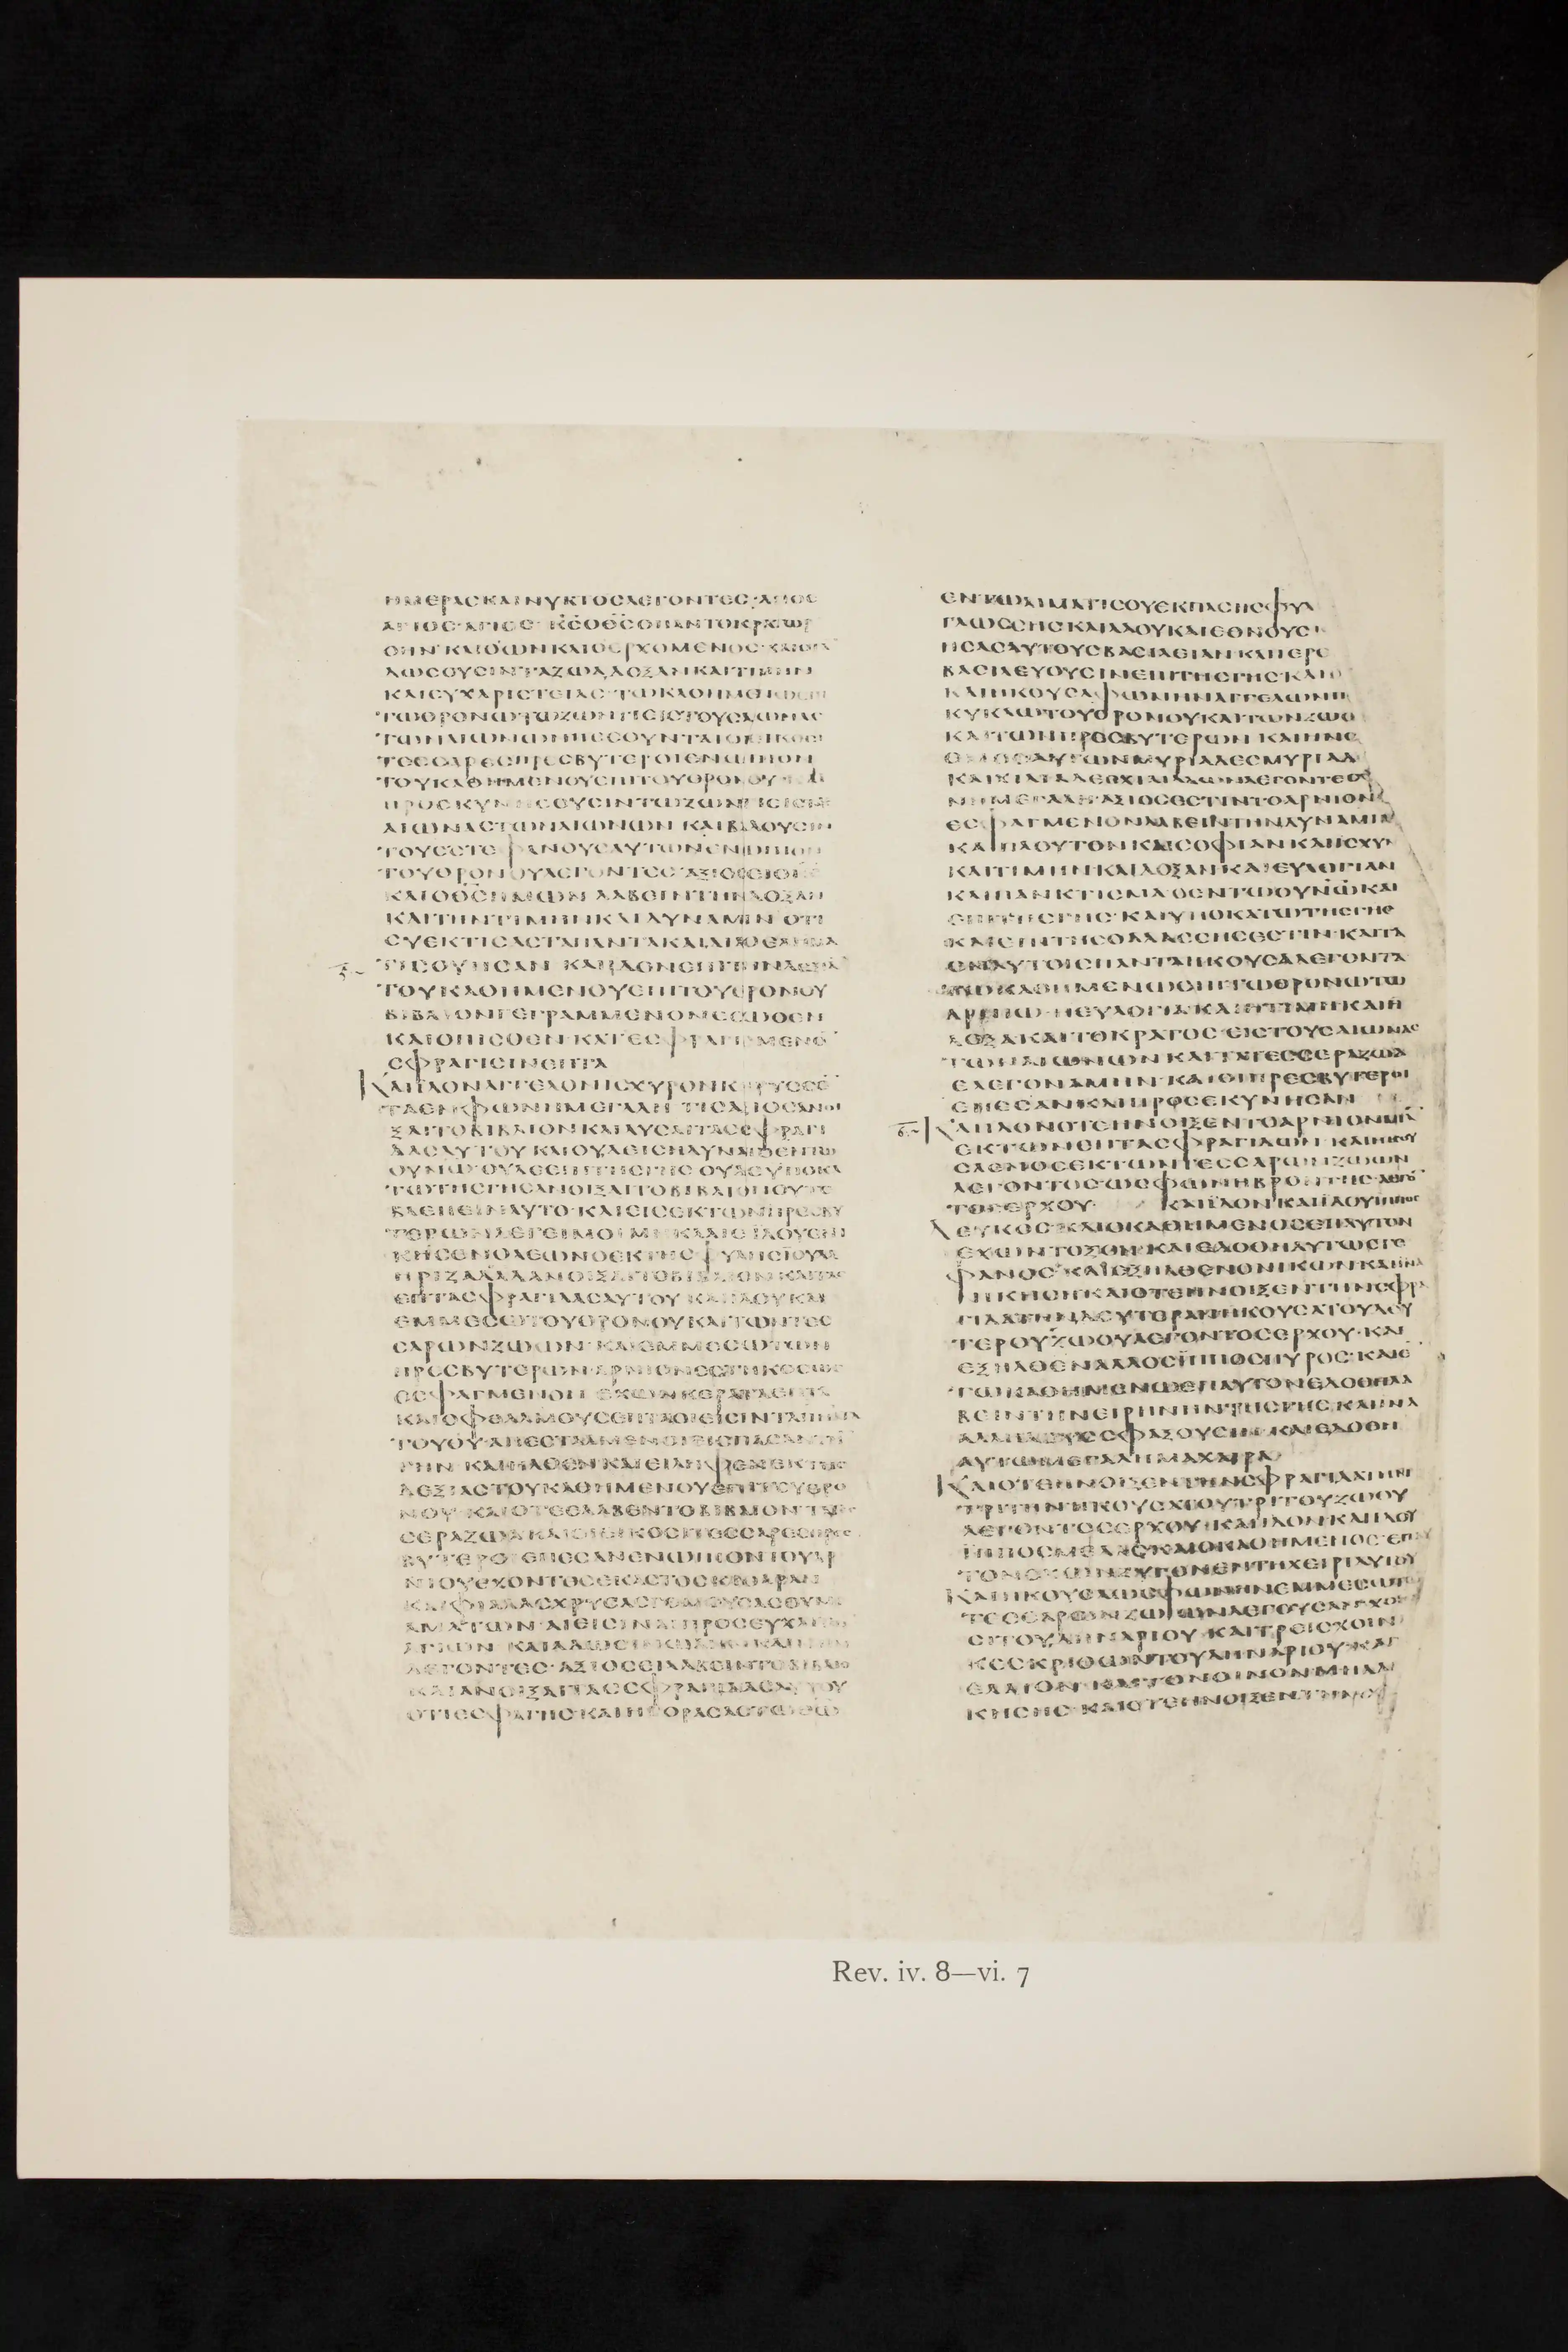 ΗΜΕΡΑСΚΑΙΝΥΚΤΟСΛΕΓΟΝΤΕС·ΑΓΙΟС
ΑΓΙΟС·ΑΓΙΟС· ΚС̅ΟΘС̅ΟΠΑΝΤΟΚΡΑΤΩΡ
ΟΗΝ·ΚΑΙΟΩΝΚΑΙΟΕΡΧΟΜΕΝΟС·ΚΑΙΟΤΑ
ΔΩСΟΥСΙΝΤΑΖΩΑΔΟΞΑΝΚΑΙΤΙΜΗΝ
ΚΑΙΕΥΧΑΡΙСΤΕΙΑС·ΤΩΚΑΘΗΜΕΝΩΕΠΙ
ΤΩΘΡΟΝΩΤΩΖΩΝΤΙΕΙСΤΟΥСΑΙΩΝΑС
ΤΩΝΑΙΩΝΩΝΠΕСΟΥΝΤΑΙΟΙΕΙΚΟСΙ
ΤΕССΑΡΕСΠΡΕСΒΥΤΕΡΟΙΕΝΩΠΙΟΝ
ΤΟΥΚΑΘΗΜΕΝΟΥΕΠΙΤΟΥΘΡΟΝΟΥ ΚΑΙ
ΠΡΟСΚΥΝΗСΟΥСΙΝΤΩΖΩΝΤΙΕΙС
ΑΙΩΝΑСΤΩΝΑΙΩΝΩΝ ΚΑΙΒΑΛΟΥСΙΝ
ΤΟΥССΤΕΦΑΝΟΥСΑΥΤΩΝΕΝΩΠΙΟΝ
ΤΟΥΘΡΟΝΟΥΛΕΓΟΝΤΕС·ΑΞΙΟСΕΙΟΚС̅
ΚΑΙΟΘС̅ΗΜΩΝ ΛΑΒΕΙΝΤΗΝΔΟΞΑΝ
ΚΑΙΤΗΝΤΙΜΗΝΚΑΙΔΥΝΑΜΙΝ ΟΤΙ
СΥΕΚΤΙСΑСΤΑΠΑΝΤΑΚΑΙΔΙΑΤΟΘΕΛΗΜΑ
ΤΟΥΚΑΘΗΜΕΝΟΥΕΠΙΤΟΥΘΡΟΝΟΥ
ΒΙΒΛΙΟΝΓΕΓΡΑΜΜΕΝΟΝΕСΩΘΕΝ
ΚΑΙΟΠΙСΘΕΝ·ΚΑΤΕСΦΡΑΓΙСΜΕΝΟ̅
СΦΡΑΓΙСΙΝΕΠΤΑ
ΚΑΙΙΔΟΝΑΓΓΕΛΟΝΙСΧΥΡΟΝΚΗΡΥССΟ̅
ΤΑΕΝΦΩΝΗΜΕΓΑΛΗ ΤΙСΑΞΙΟСΑΝΟΙ
ΞΑΙΤΟΒΙΒΛΙΟΝΚΑΙΛΥСΑΙΤΑССΦΡΑΓΙ
ΔΑСΑΥΤΟΥ ΚΑΙΟΥΔΕΙСΗΔΥΝΑΤΟΕΝΤΩ
ΟΥΝΩ·ΟΥΔΕΕΠΙΤΗСΓΗС ΟΥΔΕΥΠΟΚΑ
ΤΩΤΗСΓΗСΑΝΟΙΞΑΙΤΟΒΙΒΛΙΟΝΟΥΤΕ
ΒΛΕΠΕΙΝΑΥΤΟ·ΚΑΙΕΙСΕΚΤΩΝΠΡΕСΒΥ
ΤΕΡΩΝΛΕΓΕΙΜΟΙΜΗΚΛΑΙΕ ΙΔΟΥΕΝΙ
ΚΗСΕΝΟΛΕΩΝΟΕΚΤΗСΦΥΛΗСΙΟΥΔΑ
ΗΡΙΖΑΔΑΔΑΝΟΙΞΑΙΤΟΒΙΒΛΙΟΝΚΑΙΤΑС
ΕΠΤΑСΦΡΑΓΙΔΑСΑΥΤΟΥ ΚΑΙΙΔΟΥΚΑΙ
ΕΜΜΕСΩΤΟΥΘΡΟΝΟΥΚΑΙΤΩΝΤΕС
СΑΡΩΝΖΩΩΝ·ΚΑΙΕΜΜΕСΩΤΩΝ
ΠΡΕСΒΥΤΕΡΩΝ·ΑΡΝΙΟΝΕСΤΗΚΟСΩС
ΕСΦΑΓΜΕΝΟΝ ΕΧΩΝΚΕΡΑΤΑΕΠΤΑ
ΚΑΙΟΦΘΑΛΜΟΥСΕΠΤΑΟΙΕΙСΙΝΤΑΕΠΤΑΠΝΑ
ΤΟΥΘΥ̅ΑΠΕСΤΑΛΜΕΝΟΙΕΙСΠΑСΑΝΤΗ̅
ΓΗΝ ΚΑΙΗΛΘΕΝ·ΚΑΙΕΙΛΗΦΕΝΕΚΤΗС
ΔΕΞΙΑСΤΟΥΚΑΘΗΜΕΝΟΥΕΠΙΤΟΥΘΡΟ
ΝΟΥ ΚΑΙΟΤΕΕΛΑΒΕΝΤΟΒΙΒΛΙΟΝ
СΕΡΑΖΩΑΚΑΙΟΙΕΙΚΟСΙΤΕССΑΡΕСΠΡΕС
ΒΥΤΕΡΟΙ ΕΠΕСΑΝΕΝΩΠΙΟΝΤΟΥΑΡ
ΝΙΟΥΕΧΟΝΤΕСΕΚΑСΤΟСΚΙΘΑΡΑΝ
ΚΑΙΦΙΑΛΑСΧΡΥСΑСΓΕΜΟΥСΑСΘΥΜΙ
ΑΜΑΤΩΝ ΑΙΕΙСΙΝΑΙΠΡΟСΕΥΧΑΙ
ΛΕΓΟΝΤΕС·ΑΞΙΟСΕΙΛΑΒΕΙΝΤΟΒΙΒΛΙΟ
ΚΑΙΑΝΟΙΞΑΙΤΑССΦΡΑΓΙΔΑСΑΥΤΟΥ
ΟΤΙΕСΦΑΓΗС·ΚΑΙΗΓΟΡΑСΑСΤΩΘΩ̅
ΕΝΤΩΑΙΜΑΤΙСΟΥΕΚΠΑСΗСΦΥΛ
ΓΛΩССΗСΚΑΙΛΑΟΥΚΑΙΕΘΝΟΥС
ΗСΑСΑΥΤΟΥСΒΑСΙΛΕΙΑΝ·ΚΑΙΙΕΡΕ
ΒΑСΙΛΕΥΟΥСΙΝΕΠΙΤΗСΓΗС·ΚΑΙΙ
ΚΑΙΗΚΟΥСΑΦΩΝΗΝΑΓΓΕΛΩΝΠ
ΚΥΚΛΩΤΟΥΘΡΟΝΟΥΚΑΙΤΩΝΖΩΩ
ΚΑΙΤΩΝΠΡΕСΒΥΤΕΡΩΝ ΚΑΙΗΝΟ
ΚΑΙΧΙΛΙΑΔΕСΧΙΛΙΑΔΩΝΛΕΓΟΝΤΕС
ΝΗΜΕΓΑΛΗ·ΑΞΙΟСΕСΤΙΝΤΟΑΡΝΙΟΝ
ΕСΦΑΓΜΕΝΟΝΛΑΒΕΙΝΤΗΝΔΥΝΑΜΙΝ
ΚΑΙΠΛΟΥΤΟΝΚΑΙСΟΦΙΑΝΚΑΙΙСΧΥΝ
ΚΑΙΤΙΜΗΝΚΑΙΔΟΞΑΝΚΑΙΕΥΛΟΓΙΑΝ
ΚΑΙΠΑΝΚΤΙСΜΑΟΕΝΤΩΟΥΝΩ̅ΚΑΙ
ΕΠΙΤΗСΓΗС·ΚΑΙΥΠΟΚΑΤΩΤΗСΓΗС
ΚΑΙΕΠΙΤΗСΘΑΛΑССΗСΕСΤΙΝ·ΚΑΙΤΑ
ΕΝΑΥΤΟΙСΠΑΝΤΑΗΚΟΥСΑΛΕΓΟΝΤΑ
ΤΩΚΑΘΗΜΕΝΩΕΠΙΤΩΘΡΟΝΩΤΩ
ΑΡΝΙΩ·ΗΕΥΛΟΓΙΑΚΑΙΗΤΙΜΗΚΑΙΗ
ΔΟΞΑΚΑΙΤΟΚΡΑΤΟС·ΕΙСΤΟΥСΑΙΩΝΑС
ΤΩΝΑΙΩΝΩΝ·ΚΑΙΤΑΤΕССΕΡΑΖΩΑ
ΕΛΕΓΟΝΑΜΗΝ·ΚΑΙΟΙΠΡΕСΒΥΤΕΡΟΙ
ΕΠΕСΑΝΚΑΙΠΡΟСΕΚΥΝΗСΑΝ
ΚΑΙΙΔΟΝΟΤΕΗΝΟΙΞΕΝΤΟΑΡΝΙΟΝΜΙΑ̅
ΕΚΤΩΝΕΠΤΑСΦΡΑΓΙΔΩΝ ΚΑΙΗΚΟΥ
СΑΕΝΟСΕΚΤΩΝΤΕССΑΡΩΝΖΩΩΝ
ΛΕΓΟΝΤΟС·ΩСΦΩΝΗΒΡΟΝΤΗС·
ΕΡΧΟΥ· ΚΑΙΙΔΟΝ·ΚΑΙΙΔΟΥΙΠΠΟС
ΛΕΥΚΟС·ΚΑΙΟΚΑΘΗΜΕΝΟСΕΠΑΥΤΟΝ
ΕΧΩΝΤΟΞΟΝ·ΚΑΙΕΔΟΘΗΑΥΤΩСΤΕ
ΦΑΝΟС·ΚΑΙΕΞΗΛΘΕΝΟΝΙΚΩΝΚΑΙΙΝΑ
ΝΙΚΗСΗ·ΚΑΙΟΤΕΗΝΟΙΞΕΝΤΗΝСΦΡΑ
ΓΙΔΑΤΗΝΔΕΥΤΕΡΑΝΗΚΟΥСΑΤΟΥΔΕΥ
ΤΕΡΟΥΖΩΟΥΛΕΓΟΝΤΟСΕΡΧΟΥ·ΚΑΙ
ΕΞΗΛΘΕΝΑΛΛΟСΙΠΠΟСΠΥΡΟС·ΚΑΙΕ
ΤΩΚΑΘΗΜΕΝΩΕΠΑΥΤΟΝΕΔΟΘΗΛΑ
ΒΕΙΝΤΗΝΕΙΡΗΝΗΝΤΗСΓΗС·ΚΑΙΙΝΑ
ΑΛΛΗΛΟΥССΦΑΞΟΥСΙΝ·ΚΑΙΕΔΟΘΗ
ΑΥΤΩΜΕΓΑΛΗΜΑΧΑΙΡΑ
ΚΑΙΟΤΕΗΝΟΙΞΕΝΤΗΝСΦΡΑΓΙΔΑΤΗΝ
ΤΡΙΤΗΝ·ΗΚΟΥСΑΤΟΥΤΡΙΤΟΥΖΩΟΥ
ΛΕΓΟΝΤΟСΕΡΧΟΥ·ΚΑΙΙΔΟΝΚΑΙΙΔΟΥ
ΙΠΠΟСΜΕΛΑС·ΚΑΙΟΚΑΘΗΜΕΝΟС·ΕΠΑΥ
ΤΟΝΕΧΩΝΖΥΓΟΝΕΝΤΗΧΕΙΡΙΑΥΤΟΥ
ΚΑΙΗΚΟΥСΑΩСΦΩΝΗΝΕΜΜΕСΩΤΩ
ΤΕССΑΡΩΝΖΩΩΝΛΕΓΟΥСΑΝ·ΧΟΙ
СΙΤΟΥΔΗΝΑΡΙΟΥ·ΚΑΙΤΡΕΙСΧΟΙΝΙ
ΚΕСΚΡΙΘΩΝΤΟΥΔΗΝΑΡΙΟΥ·ΚΑΙΤ
ΕΛΑΙΟΝ·ΚΑΙΤΟΝΟΙΝΟΝΜΗΑΔΙ
ΚΗСΗС·ΚΑΙΟΤΕΗΝΟΙΞΕΝΤΗΝСΦ
Rev. iv. 8—vi. 7